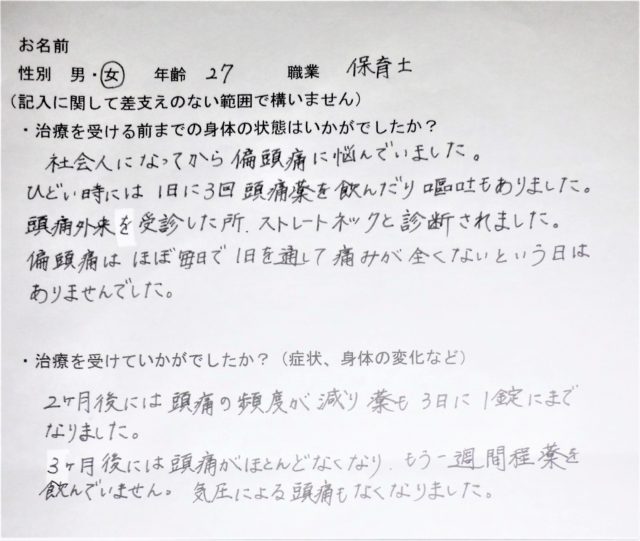 お名前
性別 男・女 年齢 27 職業 保育士
(記入に関して差支えのない範囲で構いません)
・治療を受ける前までの身体の状態はいかがでしたか?
社会人になってから偏頭痛に悩んでいました。
ひどい時には1日に3回頭痛薬を飲んだり嘔吐もありました。
頭痛外来を受診した所、ストレートネックと診断されました。
偏頭痛はほぼ毎日で1日を通して痛みが全くないという日は
ありませんでした。
・治療を受けていかがでしたか?(症状、身体の変化など)
2ヶ月後には頭痛の頻度が減り薬も3日に1錠にまで
なりました。
3ヶ月後には頭痛がほとんどなくなり、もう一週間程薬を
飲んでいません。気圧による頭痛もなくなりました。